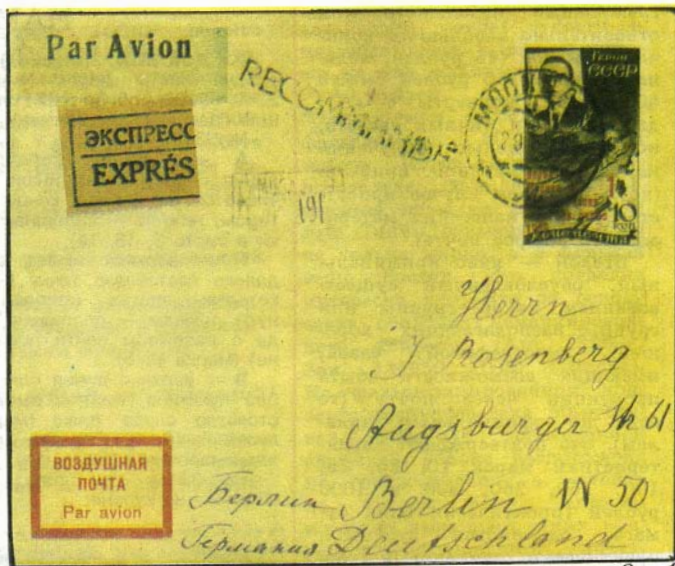 Par Avion
RECOMMANDÉ
ЭКСПРЕСС
EXPRÉS
191
Герои
СССР
10
коп
Herrn
J Rosenberg
Augsburger Str 61
Берлин Berlin W 50
Германия Deutschland
ВОЗДУШНАЯ
ПОЧТА
Par avion